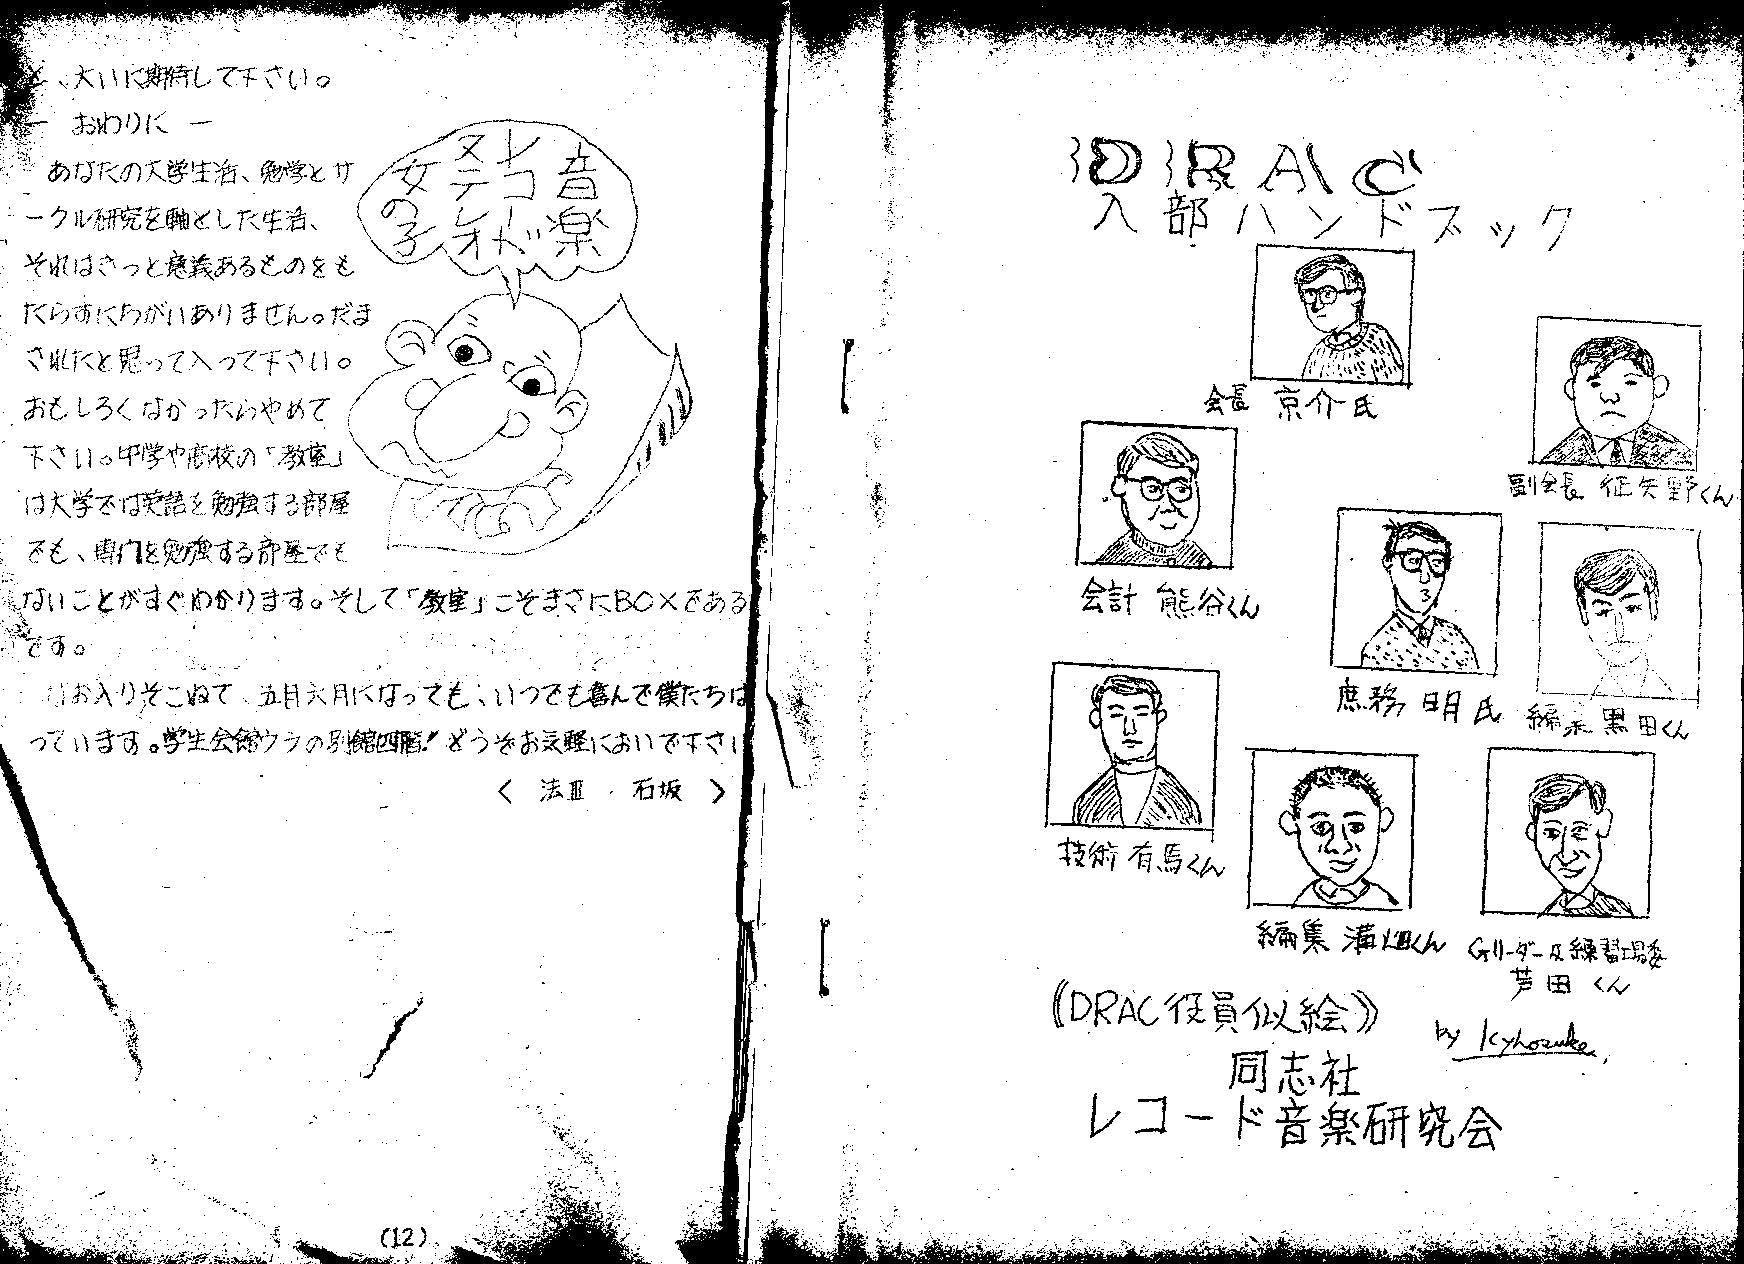 と、大いに期待して下さい。
― おわりに ―
あなたの大学生活、勉学とサ
ークル研究を軸とした生活、
それはきっと意義あるものをも
たらすにちがいありません。だま
されたと思って入って下さい。
おもしろくなかったらやめて
下さい。中学や高校の「教室」
は大学では英語を勉強する部屋
でも、専門を勉強する部屋でも
ないことがすぐわかります。そして「教室」こそまさにBOXである
です。
お入りそこねて、五月六月になっても、いつでも喜んで僕たちは
っています。学生会館ウラの別館四階!どうぞお気軽においで下さい
< 法Ⅲ・石坂 >
音楽
レコード
ステレオ
女の子
(12)
DRAC
入部ハンドブック
会長 京介氏
副会長 征矢野くん
会計 熊谷くん
庶務 明氏
編集 黒田くん
技術 有馬くん
編集 溝くん
Gリーダー及練習場委
芦田くん
《DRAC役員似絵》
by Kyhosuke
同志社
レコード音楽研究会